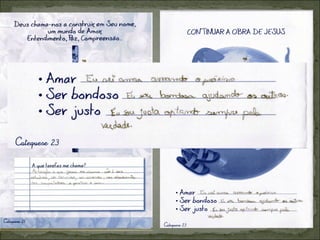 Deus chama-nos a construir, em Seu nome,
um mundo de Amor,
Entendimento, Paz, Compreensão...
CONTINUAR A OBRA DE JESUS
• Amar Eu sei amar amando o próximo
• Ser bondoso Eu sou bondosa ajudando os outros.
• Ser justo Eu sou justa optando sempre pela
verdade.
Catequese 23
A que tarefas me chama?
• Amar Eu sei amar amando o próximo
• Ser bondoso Eu sou bondosa ajudando os outros
• Ser justo Eu sou justa optando sempre pela
verdade
Catequese 21
Catequese 23